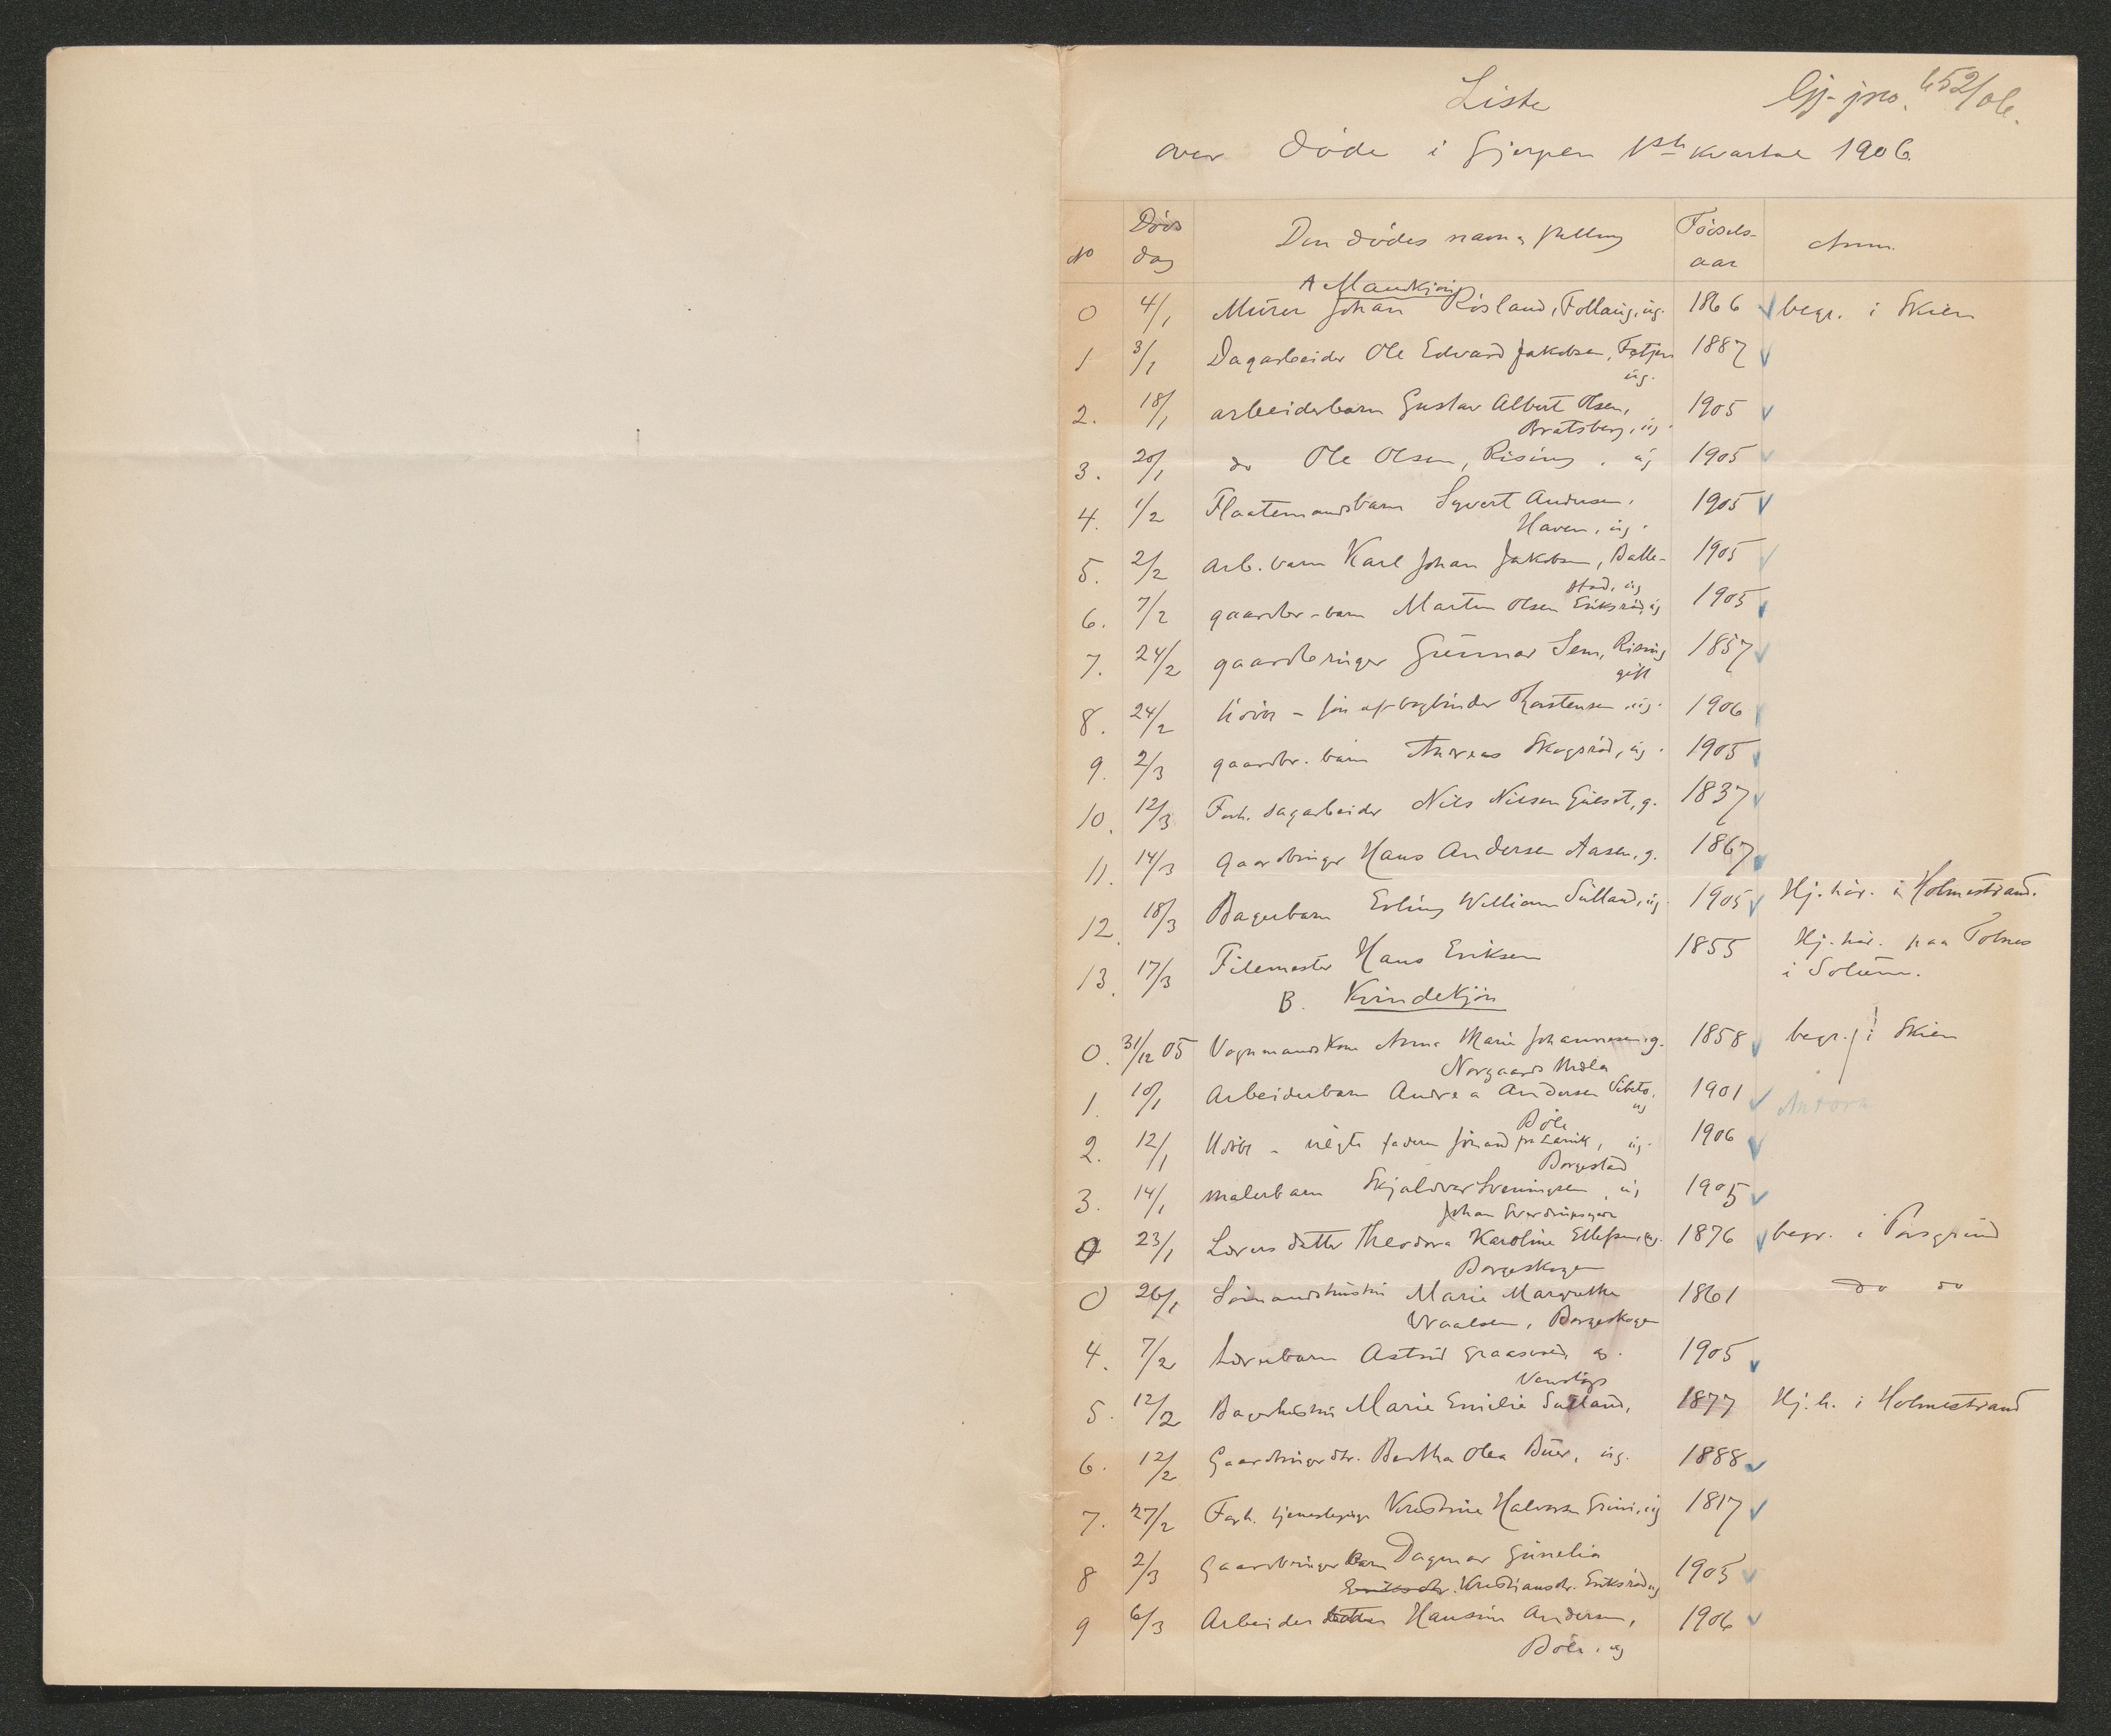 Liste
Gj-jno. 652/06.
over døde i Gjerpen 1ste kvartal 1906.
No Døds dag Den dødes navn & stilling Fødsels-aar Anm.
A Mandkjøn
0 4/1 Murer Johan Rösland, Follaug, ug. 1866 begr. i Skien
1 3/1 Dagarbeider Ole Edvard Jakobsen, 1887
ug.
2. 18/1 arbeiderbarn Gustav Albert Olsen, 1905
Bratsberg, ug.
3. 20/1 do Ole Olsen, Rising, ug 1905
4. 1/2 Flaatemandsbarn Syvert Andersen, 1905
Haven, ug.
5. 2/2 arb. barn Karl Johan Jakobsen, Balle- 1905
stad, ug
6. 7/2 gaardbr-barn Martin Olsen Eriksrød, ug 1905
7. 24/2 gaardbruger Gunnar Sem, Rising 1857
gift
8. 24/2 Udøbt - søn af bogbinder Thorstensen ug. 1906
9. 2/3 gaardbr. barn Andreas Skogsrød, ug. 1905
10. 12/3 Forh. dagarbeider Nils Nilsen Gulset, g. 1837
11. 14/3 Gaardbruger Hans Andersen Aasen, g. 1867
12. 18/3 Bagerbarn Erling William Sülland, ug. 1905 Hj. hør. i Holmestrand.
13. 17/3 Filemester Hans Eriksen 1855 Hj. hør. paa Tolnes
i Solum.
B. Kvindekjøn
0. 31/12 05 Vognmandskone Anna Marie Johannesen, g. 1858 begr. i Skien
Norgaards Mdla
1. 10/1 Arbeiderbarn Andrea Andersen 1901 Antora
ug
Böle
2. 12/1 Udøbt - uegte faderen Sømand fra Larvik, ug. 1906
Borgestad
3. 14/1 malerbarn Skjaldvor Sveningsen, ug 1905
Johan
0 23/1 Lærers datter Theodora Karoline Ellefsen, ug. 1876 begr. i Porsgrund
Borgeskogen
0 26/1 Sømandshustru Marie Margrethe 1861 do do
Wraalsen, Borgeskogen
4. 7/2 Lærerbarn Astrid Graasrød, ug. 1905
Venstøp
5. 12/2 Bagerhustru Marie Emilie Sülland, 1877 Hj. h. i Holmestrand
6. 12/2 Gaardbrugerdtr. Bertha Olea Buer, ug. 1888
7. 27/2 Forh. tjenestepige Kirstine Halvorsen Grini, ug 1817
8 2/3 Gaardbruger barn Dagmar Gunelia 1905
Eriksdtr. Kristiansdtr. Eriksrød ug
9 6/3 Arbeider datter Hansine Andersen, 1906
Böle, ug